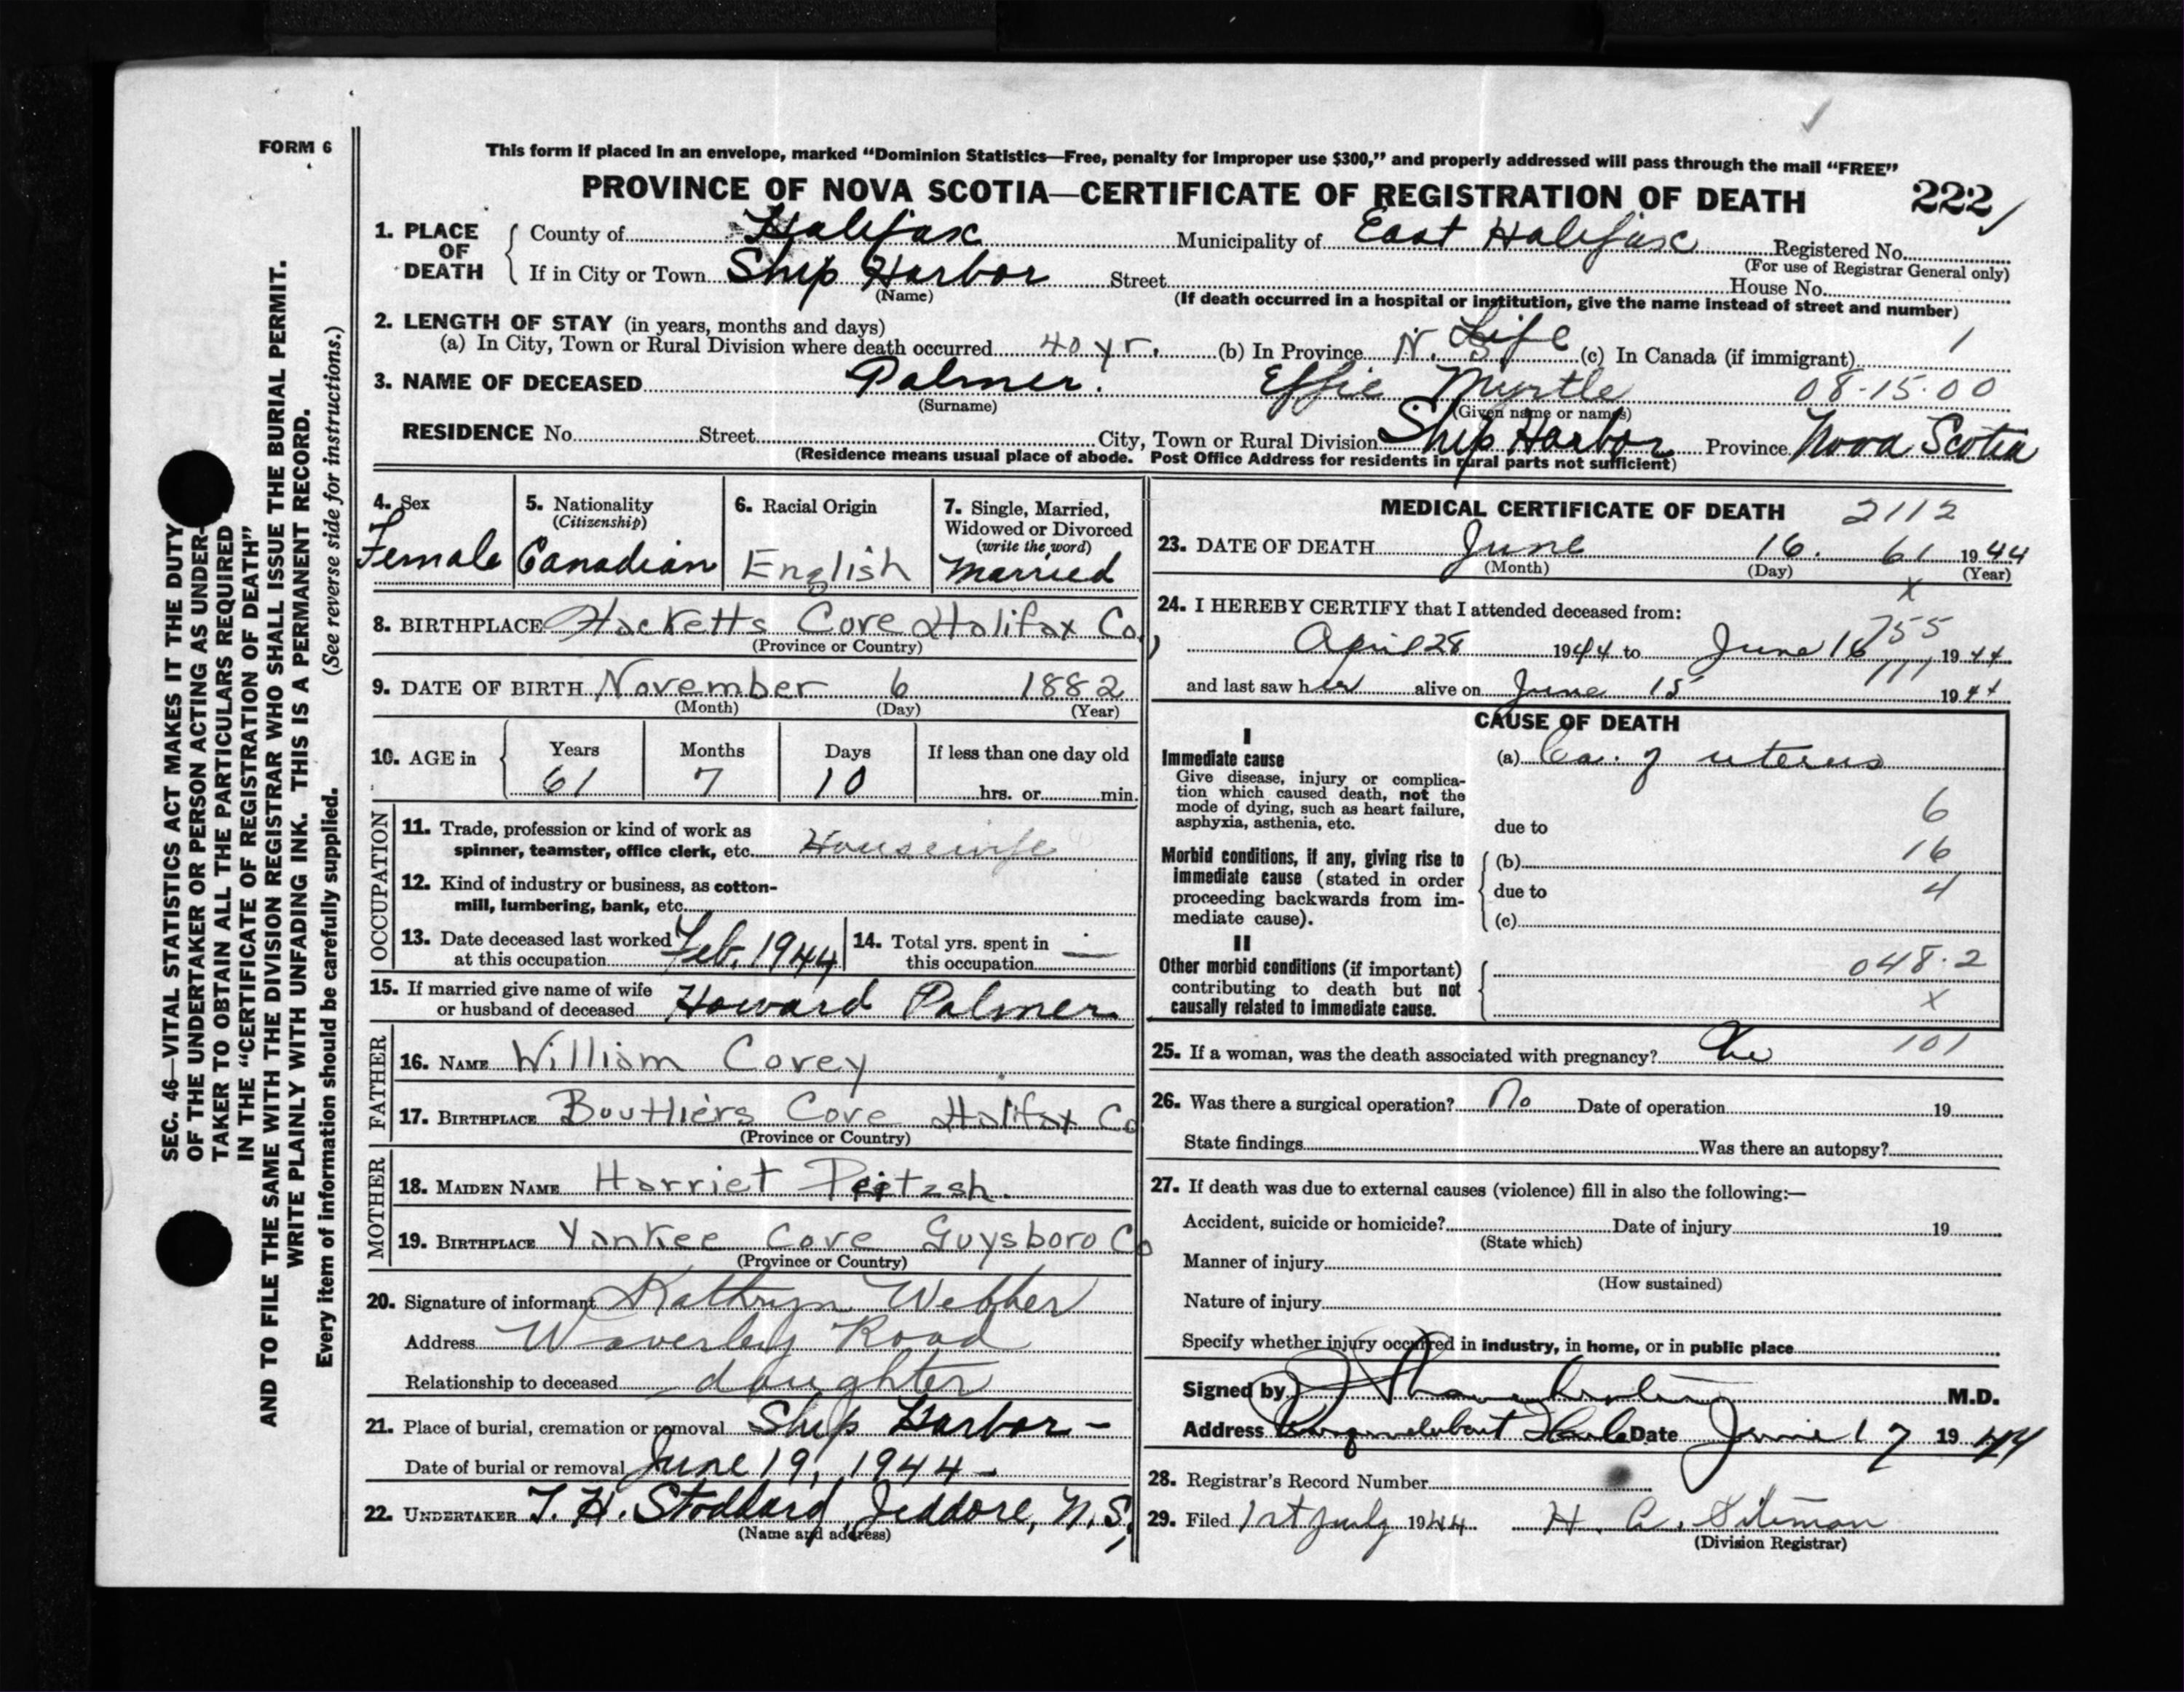 FORM 6
This form if placed in an envelope, marked "Dominion Statistics—Free, penalty for improper use $300," and properly addressed will pass through the mail "FREE"
PROVINCE OF NOVA SCOTIA—CERTIFICATE OF REGISTRATION OF DEATH 222
1. PLACE OF DEATH County of Halifax Municipality of East Halifax Registered No.
(For use of Registrar General only)
If in City or Town Ship Harbor Street House No.
(Name)
(If death occurred in a hospital or institution, give the name instead of street and number)
2. LENGTH OF STAY (in years, months and days)
(a) In City, Town or Rural Division where death occurred 40 yr. (b) In Province N.S. Life (c) In Canada (if immigrant) 1
3. NAME OF DECEASED Palmer. Effie Myrtle 08-15-00
(Surname) (Given name or names)
RESIDENCE No. Street City, Town or Rural Division Ship Harbor Province Nova Scotia
(Residence means usual place of abode. Post Office Address for residents in rural parts not sufficient)
SEC. 46—VITAL STATISTICS ACT MAKES IT THE DUTY
OF THE UNDERTAKER OR PERSON ACTING AS UNDER-
TAKER TO OBTAIN ALL THE PARTICULARS REQUIRED
IN THE "CERTIFICATE OF REGISTRATION OF DEATH"
AND TO FILE THE SAME WITH THE DIVISION REGISTRAR WHO SHALL ISSUE THE BURIAL PERMIT.
WRITE PLAINLY WITH UNFADING INK. THIS IS A PERMANENT RECORD.
Every item of information should be carefully supplied. (See reverse side for instructions.)
4. Sex
Female
5. Nationality
(Citizenship)
Canadian
6. Racial Origin
English
7. Single, Married,
Widowed or Divorced
(write the word)
Married
8. BIRTHPLACE Hacketts Cove Halifax Co.
(Province or Country)
9. DATE OF BIRTH November 6 1882
(Month) (Day) (Year)
10. AGE in Years Months Days If less than one day old
61 7 10 hrs. or min.
OCCUPATION
11. Trade, profession or kind of work as
spinner, teamster, office clerk, etc. Housewife
12. Kind of industry or business, as cotton-
mill, lumbering, bank, etc.
13. Date deceased last worked
at this occupation Feb. 1944
14. Total yrs. spent in
this occupation —
15. If married give name of wife
or husband of deceased Howard Palmer
FATHER
16. NAME William Covey
17. BIRTHPLACE Boutliers Cove Halifax Co
(Province or Country)
MOTHER
18. MAIDEN NAME Harriet
19. BIRTHPLACE Yankee Cove Guysboro Co
(Province or Country)
20. Signature of informant Kathryn Webber
Address Waverley Road
Relationship to deceased daughter
21. Place of burial, cremation or removal Ship Harbor -
Date of burial or removal June 19, 1944 -
22. UNDERTAKER T. H. Stoddard, Jeddore, N.S.
(Name and address)
MEDICAL CERTIFICATE OF DEATH 2112
23. DATE OF DEATH June 16. 61 1944
(Month) (Day) (Year)
x
24. I HEREBY CERTIFY that I attended deceased from:
755
April 28 1944 to June 16 1944
111
and last saw her alive on June 15 1944
CAUSE OF DEATH
I
Immediate cause
Give disease, injury or complica-
tion which caused death, not the
mode of dying, such as heart failure,
asphyxia, asthenia, etc.
(a) Ca. of uterus
6
due to
Morbid conditions, if any, giving rise to
immediate cause (stated in order
proceeding backwards from im-
mediate cause).
(b) 16
due to 4
(c)
II
Other morbid conditions (if important)
contributing to death but not
causally related to immediate cause.
048.2
x
25. If a woman, was the death associated with pregnancy? No 101
26. Was there a surgical operation? No Date of operation 19
State findings Was there an autopsy?
27. If death was due to external causes (violence) fill in also the following:—
Accident, suicide or homicide? Date of injury 19
(State which)
Manner of injury
(How sustained)
Nature of injury
Specify whether injury occurred in industry, in home, or in public place
Signed by M.D.
Address Musquodoboit Date June 17 1944
28. Registrar's Record Number
29. Filed 1st July 1944 H. A. Siteman
(Division Registrar)